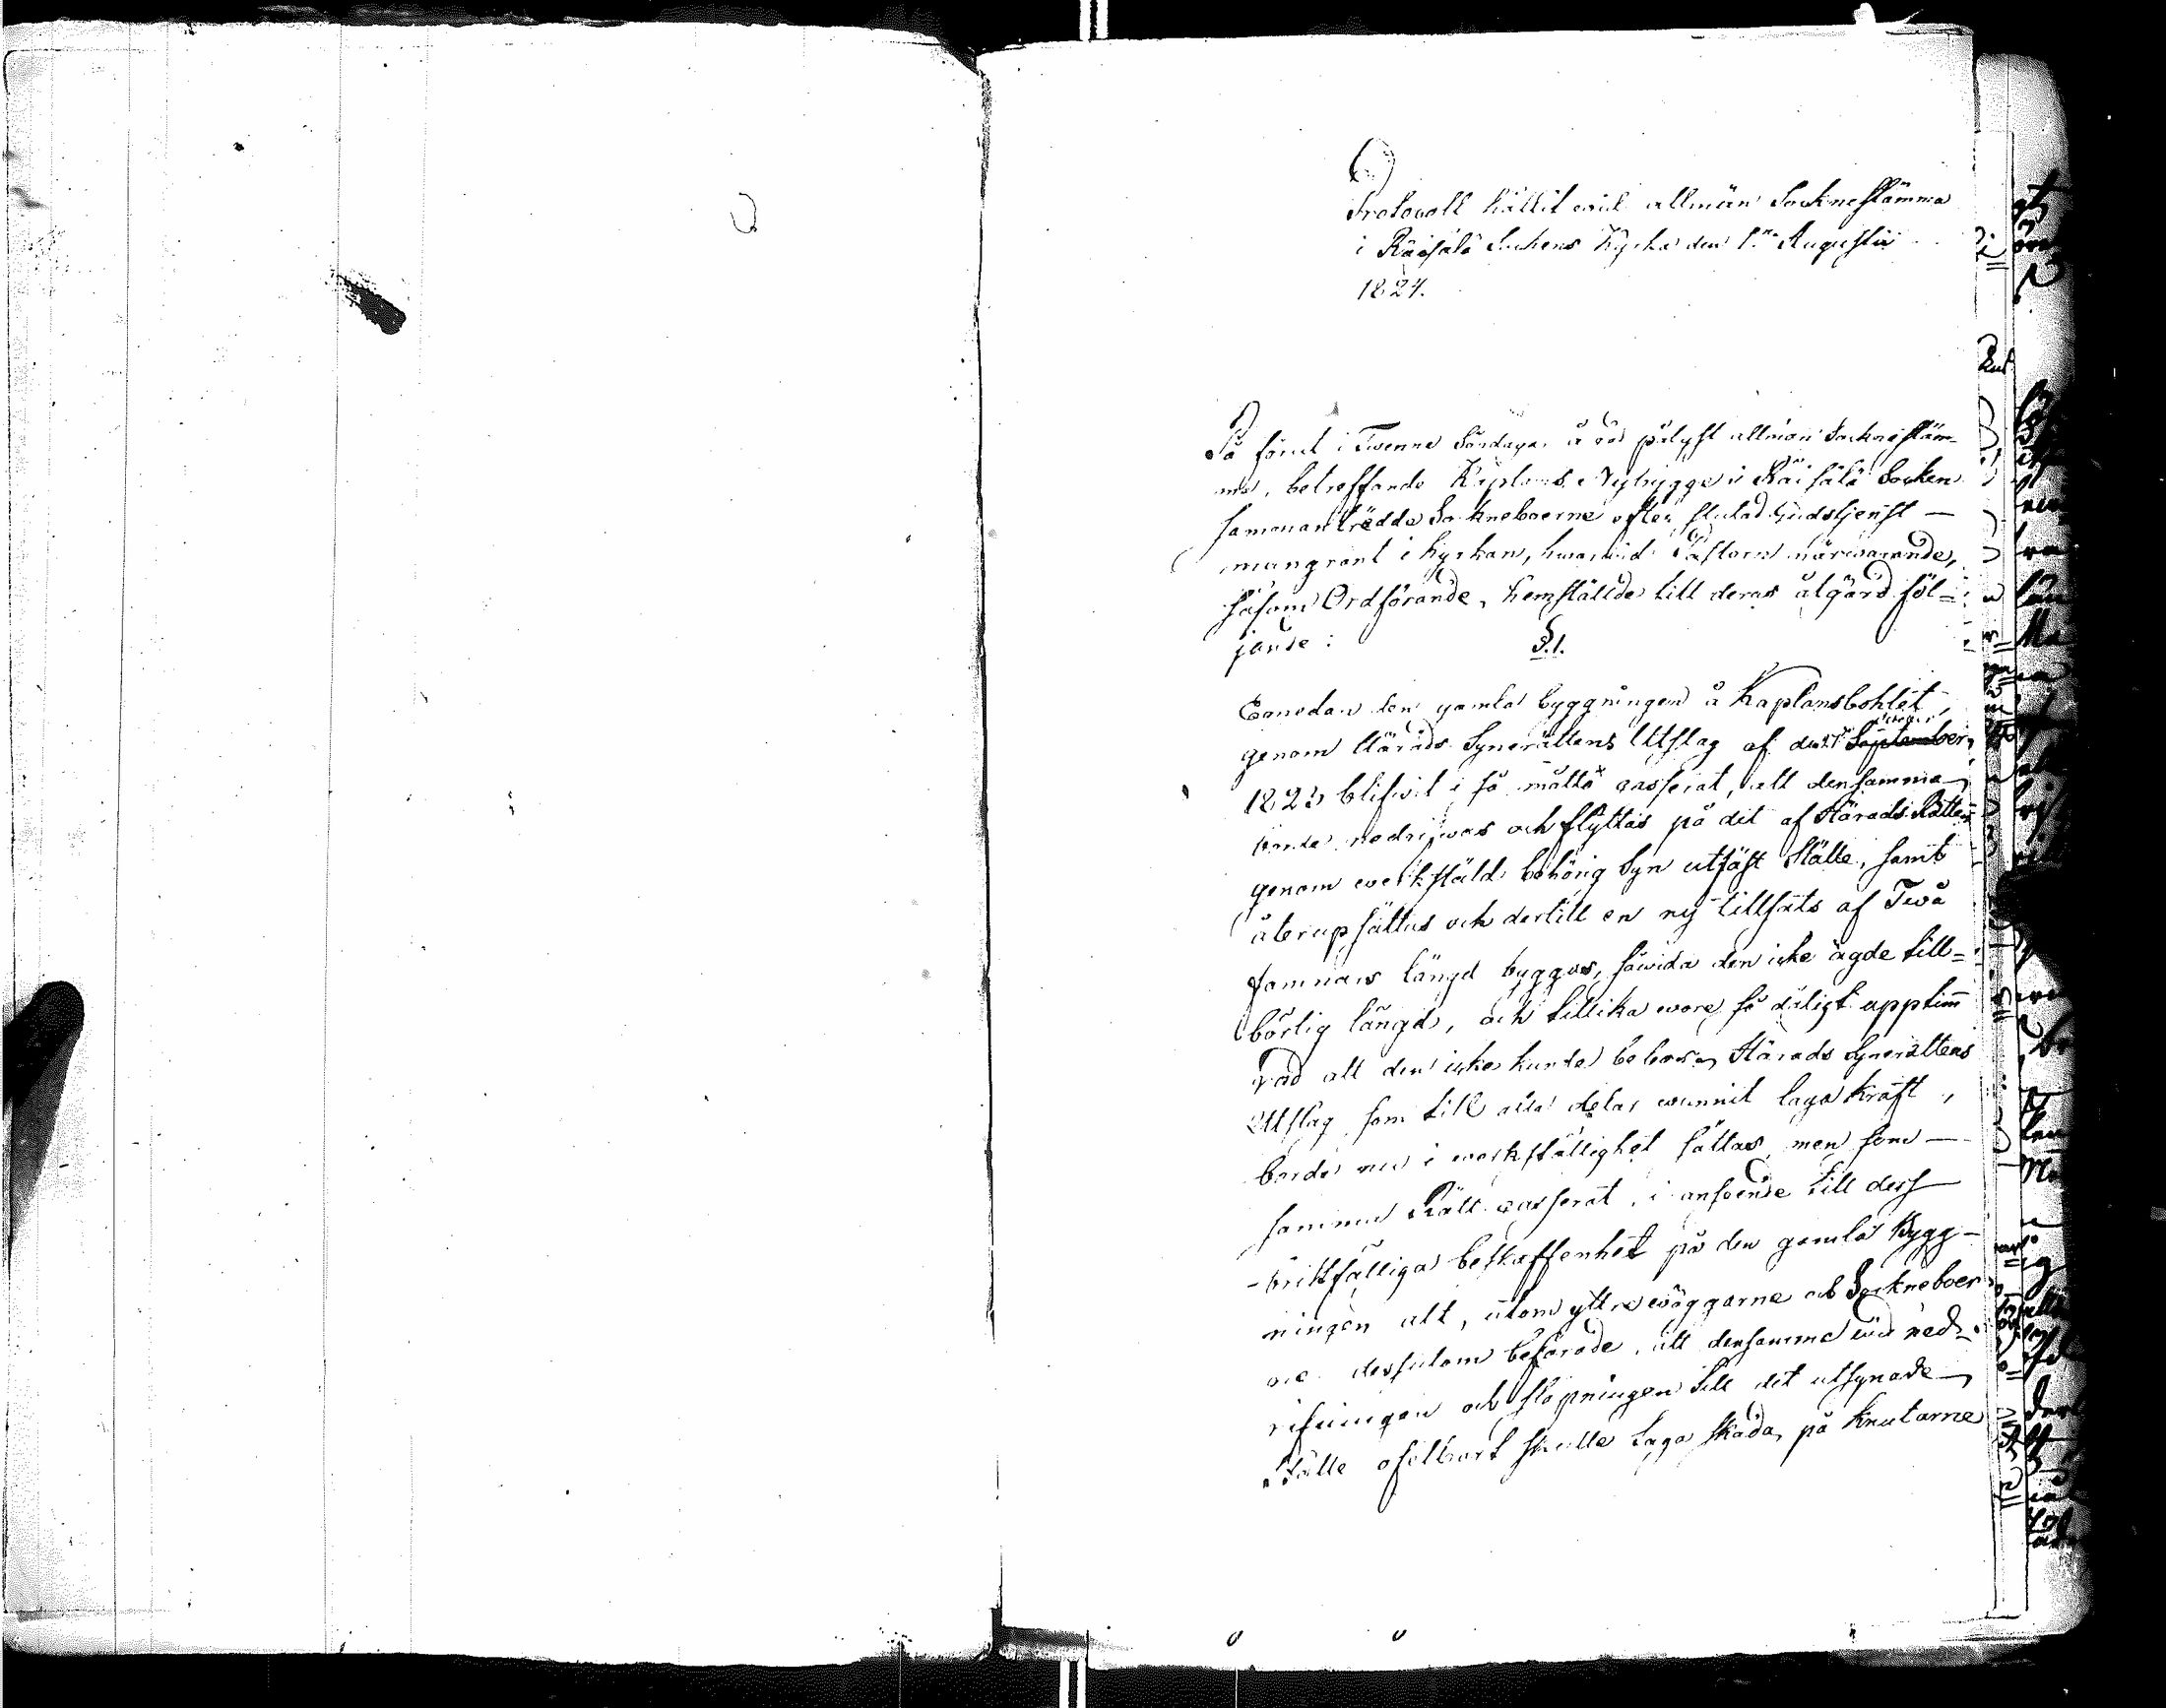 Protocoll hållit vid allmän Socknestämma
i Räisälä Sockens Kyrka den 1.ma Augustii
1824.
På förut i Twenne Söndagar å rad pålyst allmän Socknestäm-
ma, betreffande Kaplans Nybygge i Räisälä Socken
sammanträdde Sockneboerne efter slutad Gudstjenst —
mangrant i Kyrkan, hwarwid Pastorn närwarande,
såsom Ordförande, hemställde till deras åtgärd föl=
jande:
§.1.
Emedan den gamla byggningen å Kaplansbohlet,
genom Härads Synerättens Utslag af den September
1823 blifwit i så måtto casserat, att densamma
borde nedrifwas och flyttas på det af Härads Rätten
genom werkstäld behörig Syn utsäst Ställe, samt
återupsättas och dertill en ny tillsats af Twå
famnars längd byggas, såwida den icke ägde till=
börlig längd, och tillika wore så dåligt upptim̅
rad att den icke kunde bebos, Härads Synerättens
Utslag som till alla delar wunnit laga kraft,
borde nu i werkställighet sättas, men som —
samma Rätt casserat, i anseende till dess
bristfälliga beskaffenhet på den gamla Bygg-
ningen allt, utom yttre wäggarne och Sockneboer
ne dessutom befarade, att densamma wid ned-
rifningen och släpningen till det utsynade
Ställe ofelbart skulle taga skada, på knutarne